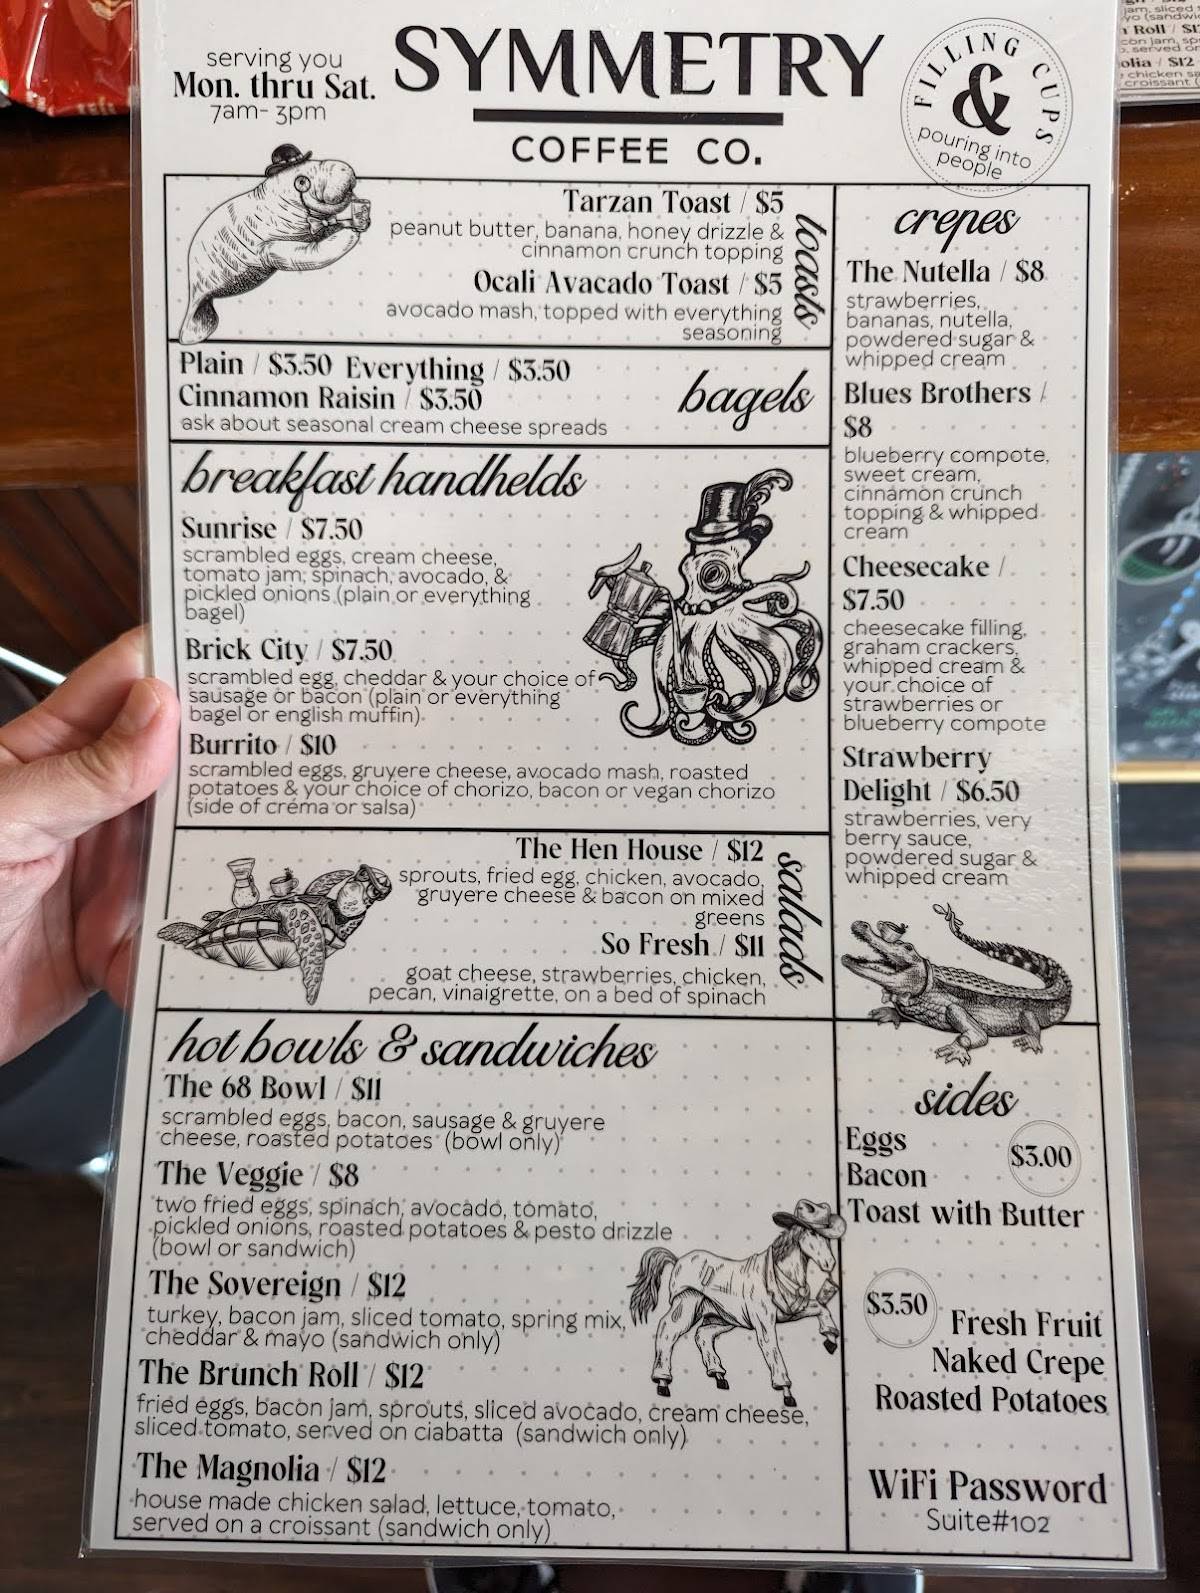 serving you
Mon. thru Sat.
7am- 3pm
SYMMETRY
COFFEE CO.
FILLING CUPS
&
pouring into
people
Tarzan Toast / $5
peanut butter, banana, honey drizzle &
cinnamon crunch topping
Ocali Avacado Toast / $5
avocado mash, topped with everything
seasoning
toasts
Plain / $3.50 Everything / $3.50
Cinnamon Raisin / $3.50
ask about seasonal cream cheese spreads
bagels
breakfast handhelds
Sunrise / $7.50
scrambled eggs, cream cheese,
tomato jam, spinach, avocado, &
pickled onions (plain or everything
bagel)
Brick City / $7.50
scrambled egg, cheddar & your choice of
sausage or bacon (plain or everything
bagel or english muffin)
Burrito / $10
scrambled eggs, gruyere cheese, avocado mash, roasted
potatoes & your choice of chorizo, bacon or vegan chorizo
(side of créma or salsa)
The Hen House / $12
sprouts, fried egg, chicken, avocado,
gruyere cheese & bacon on mixed
greens
So Fresh / $11
goat cheese, strawberries, chicken,
pecan, vinaigrette, on a bed of spinach
salads
hot bowls & sandwiches
The 68 Bowl / $11
scrambled eggs, bacon, sausage & gruyere
cheese, roasted potatoes (bowl only)
The Veggie / $8
two fried eggs, spinach, avocado, tomato,
pickled onions, roasted potatoes & pesto drizzle
(bowl or sandwich)
The Sovereign / $12
turkey, bacon jam, sliced tomato, spring mix,
cheddar & mayo (sandwich only)
The Brunch Roll / $12
fried eggs, bacon jam, sprouts, sliced avocado, cream cheese,
sliced tomato, served on ciabatta (sandwich only)
The Magnolia / $12
house made chicken salad, lettuce, tomato,
served on a croissant (sandwich only)
crepes
The Nutella / $8
strawberries,
bananas, nutella,
powdered sugar &
whipped cream
Blues Brothers /
$8
blueberry compote,
sweet cream,
cinnamon crunch
topping & whipped
cream
Cheesecake /
$7.50
cheesecake filling,
graham crackers,
whipped cream &
your choice of
strawberries or
blueberry compote
Strawberry
Delight / $6.50
strawberries, very
berry sauce,
powdered sugar &
whipped cream
sides
Eggs
Bacon
Toast with Butter
$3.00
$3.50
Fresh Fruit
Naked Crepe
Roasted Potatoes
WiFi Password
Suite#102
jam, sliced
Roll / $1
served on
olia / $12
chicken sa
croissant (